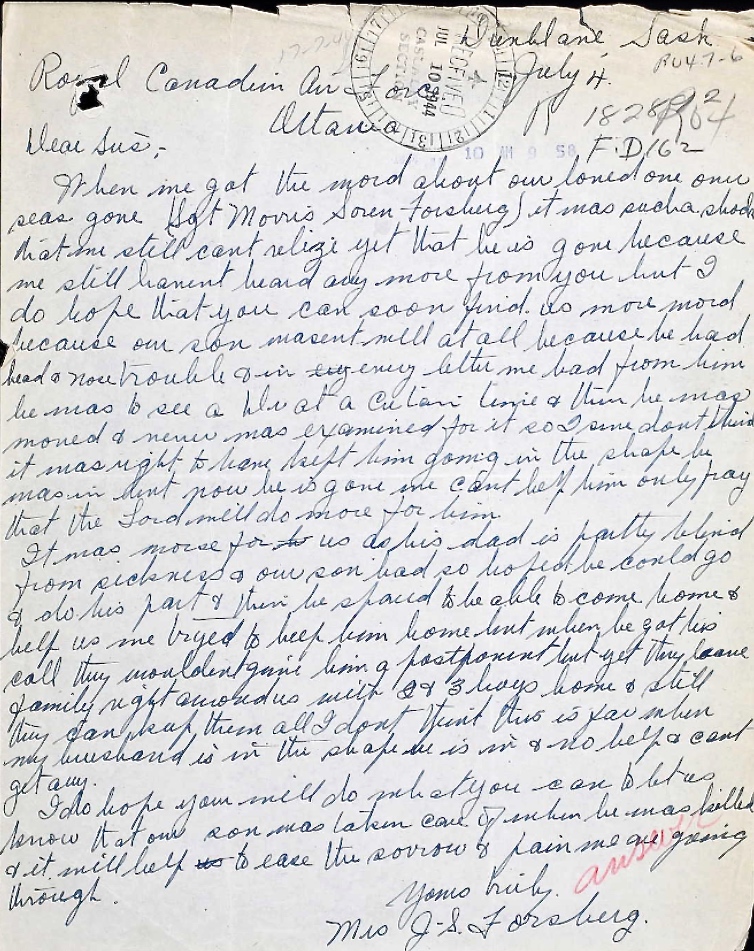 Dunblane Sask
July 4.
RECEIVED
JUL 10 1944
CASUALTY
SECTION
Royal Canadian Air Force
Ottawa
R 182864
10 AM 9 58
F.D 162
Dear Sirs;-
When we got the word about our loved one over
seas gone (Sgt Morris Soren Forsberg) it was such a shock
that we still cant relize yet that he is gone because
we still havent heard any more from you but I
do hope that you can soon find us more word
because our son wasent well at all because he had
head & nose trouble & in every letter we had from him
he was to see a Dr at a certain time & then he was
moved & never was examined for it so I sure dont think
it was right to have kept him going in the shape he
was in but now he is gone we cant help him only pray
that the Lord will do more for him
It was worse for us as his dad is partly blind
from sickness & our son had so hoped he could go
& do his part & then be spared to be able to come home &
help us we tryed to keep him home but when he got his
call they wouldent give him a postponent but yet they leave
family right around us with 2 & 3 boys home & still
they can keep them all I dont think this is fair when
my husband is in the shape he is in & no help & cant
get any.
I do hope you will do what you can to let us
know that our son was taken care of when he was killed
& it will help to ease the sorrow & pain we are going
through.
answer
Yours truly.
Mrs J-S. Forsberg.